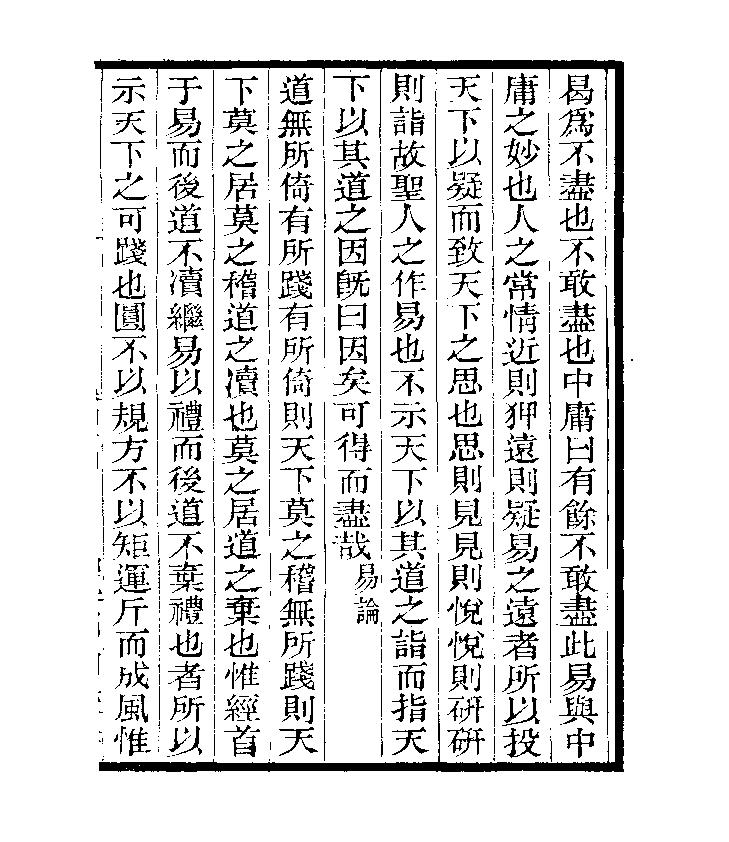 曷爲不盡也不敢盡也中庸曰有餘不敢盡此易與中
庸之妙也人之常情近則狎遠則疑易之遠者所以投
天下以疑而致天下之思也思則見見則悅悅則研研
則詣故聖人之作易也不示天下以其道之詣而指天
下以其道之因旣曰因矣可得而盡哉易論
道無所倚有所踐有所倚則天下莫之稽無所踐則天
下莫之居莫之稽道之凟也莫之居道之棄也惟經首
于易而後道不凟繼易以禮而後道不棄禮也者所以
示天下之可踐也圓不以規方不以矩運斤而成風惟